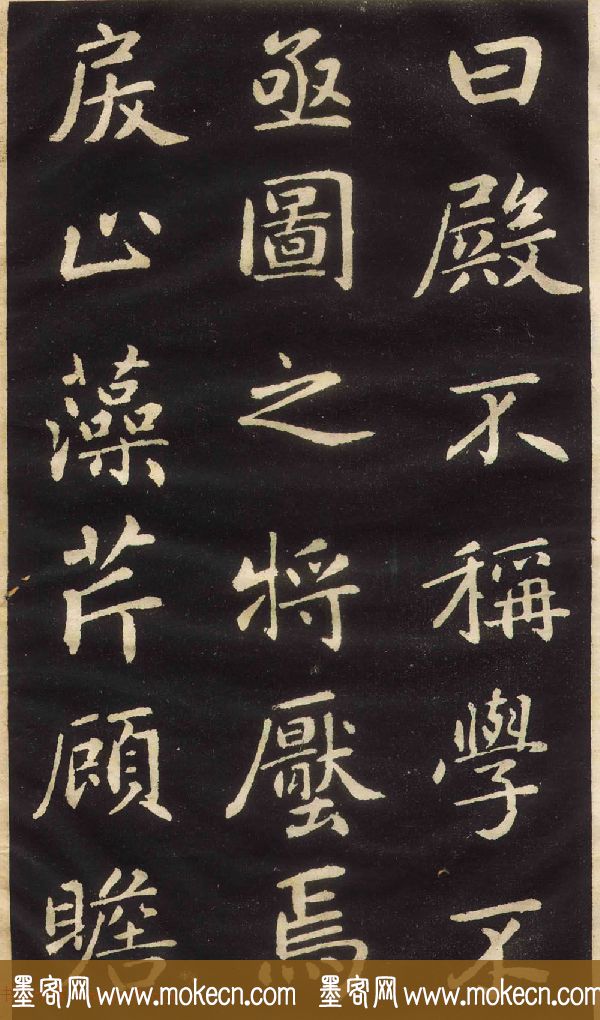 曰殿不稱學不
亟圖之將壓焉
戾止藻芹顧瞻
墨客网 www.mokecn.com 墨客网 www.mokecn.com